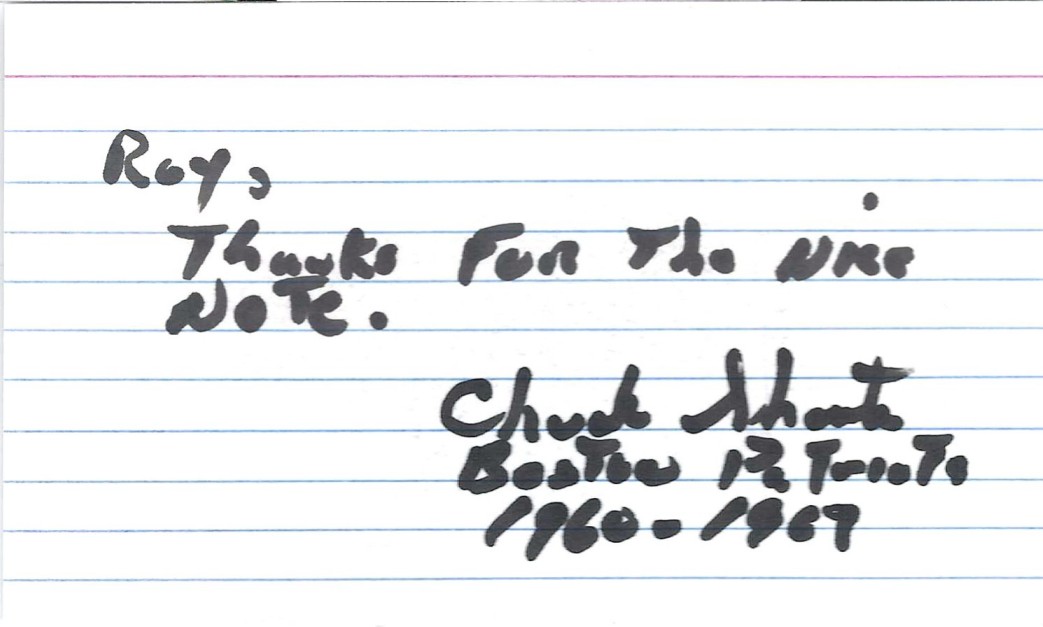 Roy,
Thanks For The Nice
Note.
Chuck Shonta
Boston Patriots
1960-1967